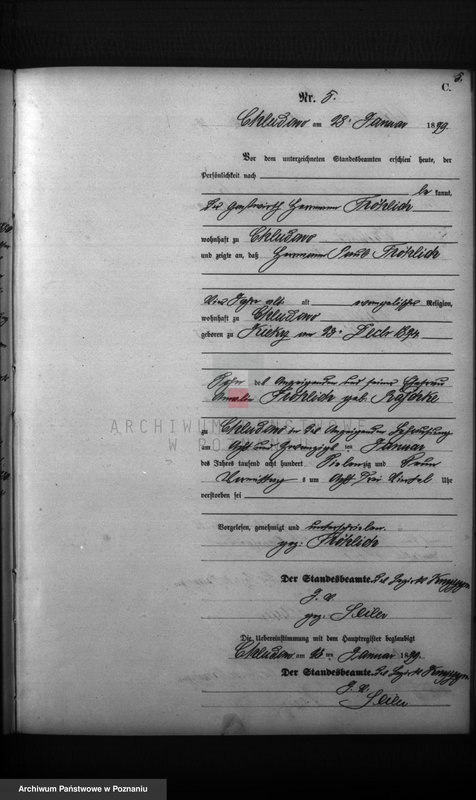 5.
C.
Nr. 5.
Chludowo am 28. Januar 1879.
Vor dem unterzeichneten Standesbeamten erschien heute, der
Persönlichkeit nach
be kannt,
der Gastwirth Hermann Fröhlich
wohnhaft zu Chludowo
und zeigte an, daß Hermann Paul Fröhlich
alt evangelischer Religion,
wohnhaft zu Chludowo
geboren zu am 23. Decbr 1874
Sohn des Anzeigenden und seiner Ehefrau
Fröhlich geb.
zu Chludowo in des Anzeigenden Behausung
am Acht und zwanzigsten Januar
des Jahres tausend acht hundert Siebenzig und Neun
Vormittags um Acht drei Viertel Uhr
verstorben sei
Vorgelesen, genehmigt und unterschrieben
gez. Fröhlich
Der Standesbeamte. des Bezirks
J. V.
gez. Seiler
Die Uebereinstimmung mit dem Hauptregister beglaubigt
Chludowo am ten Januar 1879.
Der Standesbeamte. des Bezirks
J. V.
Seiler
ARCHIWUM PAŃSTWOWE
W POZNANIU
Archiwum Państwowe w Poznaniu